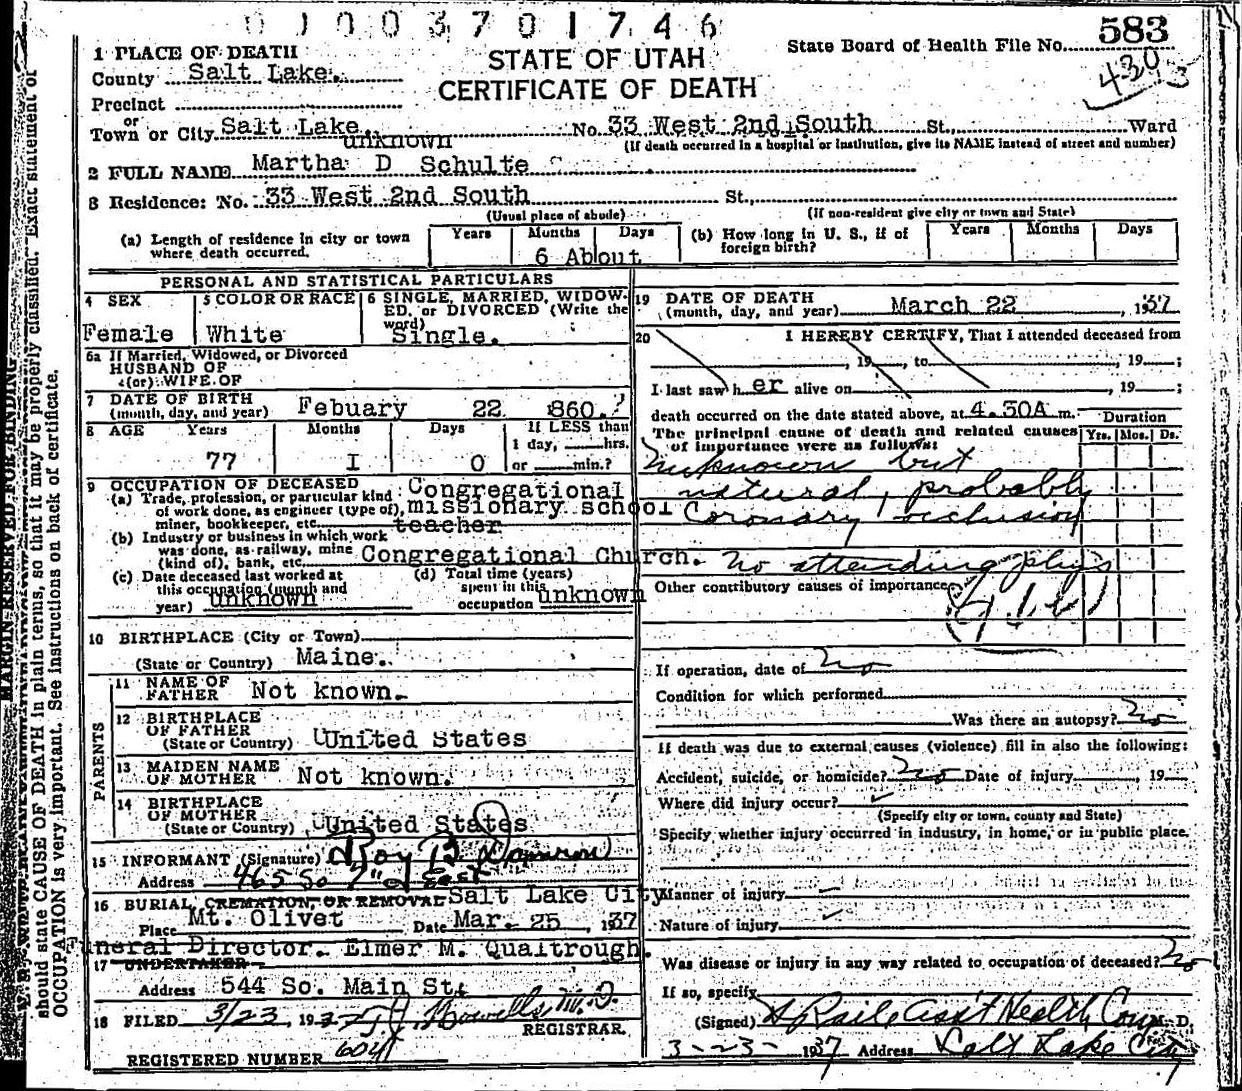 01003701746
583
State Board of Health File No.
430
3
STATE OF UTAH
CERTIFICATE OF DEATH
1 PLACE OF DEATH
County Salt Lake.
Precinct
or
Town or City Salt Lake, No. 33 West 2nd South St., Ward
unknown
(If death occurred in a hospital or institution, give its NAME instead of street and number)
2 FULL NAME Martha D Schulte
3 Residence: No. 33 West 2nd South St.,
(Usual place of abode) (If non-resident give city or town and State)
(a) Length of residence in city or town where death occurred. Years Months Days
6 About
(b) How long in U. S., if of foreign birth? Years Months Days
PERSONAL AND STATISTICAL PARTICULARS
4 SEX 5 COLOR OR RACE 6 SINGLE, MARRIED, WIDOW-
ED, or DIVORCED (Write the
word)
Female White Single.
6a If Married, Widowed, or Divorced
HUSBAND OF
(or) WIFE OF
7 DATE OF BIRTH
(month, day, and year) Febuary 22 860.?
8 AGE Years Months Days If LESS than
1 day, hrs.
77 I 0 or min.?
9 OCCUPATION OF DECEASED
(a) Trade, profession, or particular kind
of work done, as engineer (type of),
miner, bookkeeper, etc.
Congregational
missionary school
teacher
(b) Industry or business in which work
was done, as railway, mine
(kind of), bank, etc. Congregational Church.
(c) Date deceased last worked at
this occupation (month and
year) unknown
(d) Total time (years)
spent in this
occupation unknown
10 BIRTHPLACE (City or Town)
(State or Country) Maine.
PARENTS
11 NAME OF
FATHER Not known.
12 BIRTHPLACE
OF FATHER
(State or Country) United States
13 MAIDEN NAME
OF MOTHER Not known.
14 BIRTHPLACE
OF MOTHER
(State or Country) United States
15 INFORMANT (Signature) Roy B
Address 465 So 7" East
16 BURIAL, CREMATION, OR REMOVAL Salt Lake City
Place Mt. Olivet Date Mar. 25, 1937
Funeral Director. Elmer M. Qualtrough.
17 UNDERTAKER
Address 544 So. Main St.
18 FILED 3/23 1937 M.D.
REGISTRAR.
REGISTERED NUMBER
19 DATE OF DEATH
(month, day, and year) March 22, 1937
20 I HEREBY CERTIFY, That I attended deceased from
, 19 , to , 19 ;
I last saw her alive on , 19 ;
death occurred on the date stated above, at 4.30A m.
Duration
The principal cause of death and related causes
of importance were as follows:
Yrs. Mos. Ds.
Unknown but
natural, probably
Coronary occlusion
No attending phys
Other contributory causes of importance
If operation, date of no
Condition for which performed
Was there an autopsy? no
If death was due to external causes (violence) fill in also the following:
Accident, suicide, or homicide? no Date of injury , 19
Where did injury occur?
(Specify city or town, county and State)
Specify whether injury occurred in industry, in home, or in public place.
Manner of injury
Nature of injury
Was disease or injury in any way related to occupation of deceased? no
If so, specify
(Signed) Ass't Health Com M. D.
3-23- 1937 Address Salt Lake City
MARGIN RESERVED FOR BINDING
should state CAUSE OF DEATH in plain terms, so that it may be properly classified. Exact statement of
OCCUPATION is very important. See instructions on back of certificate.